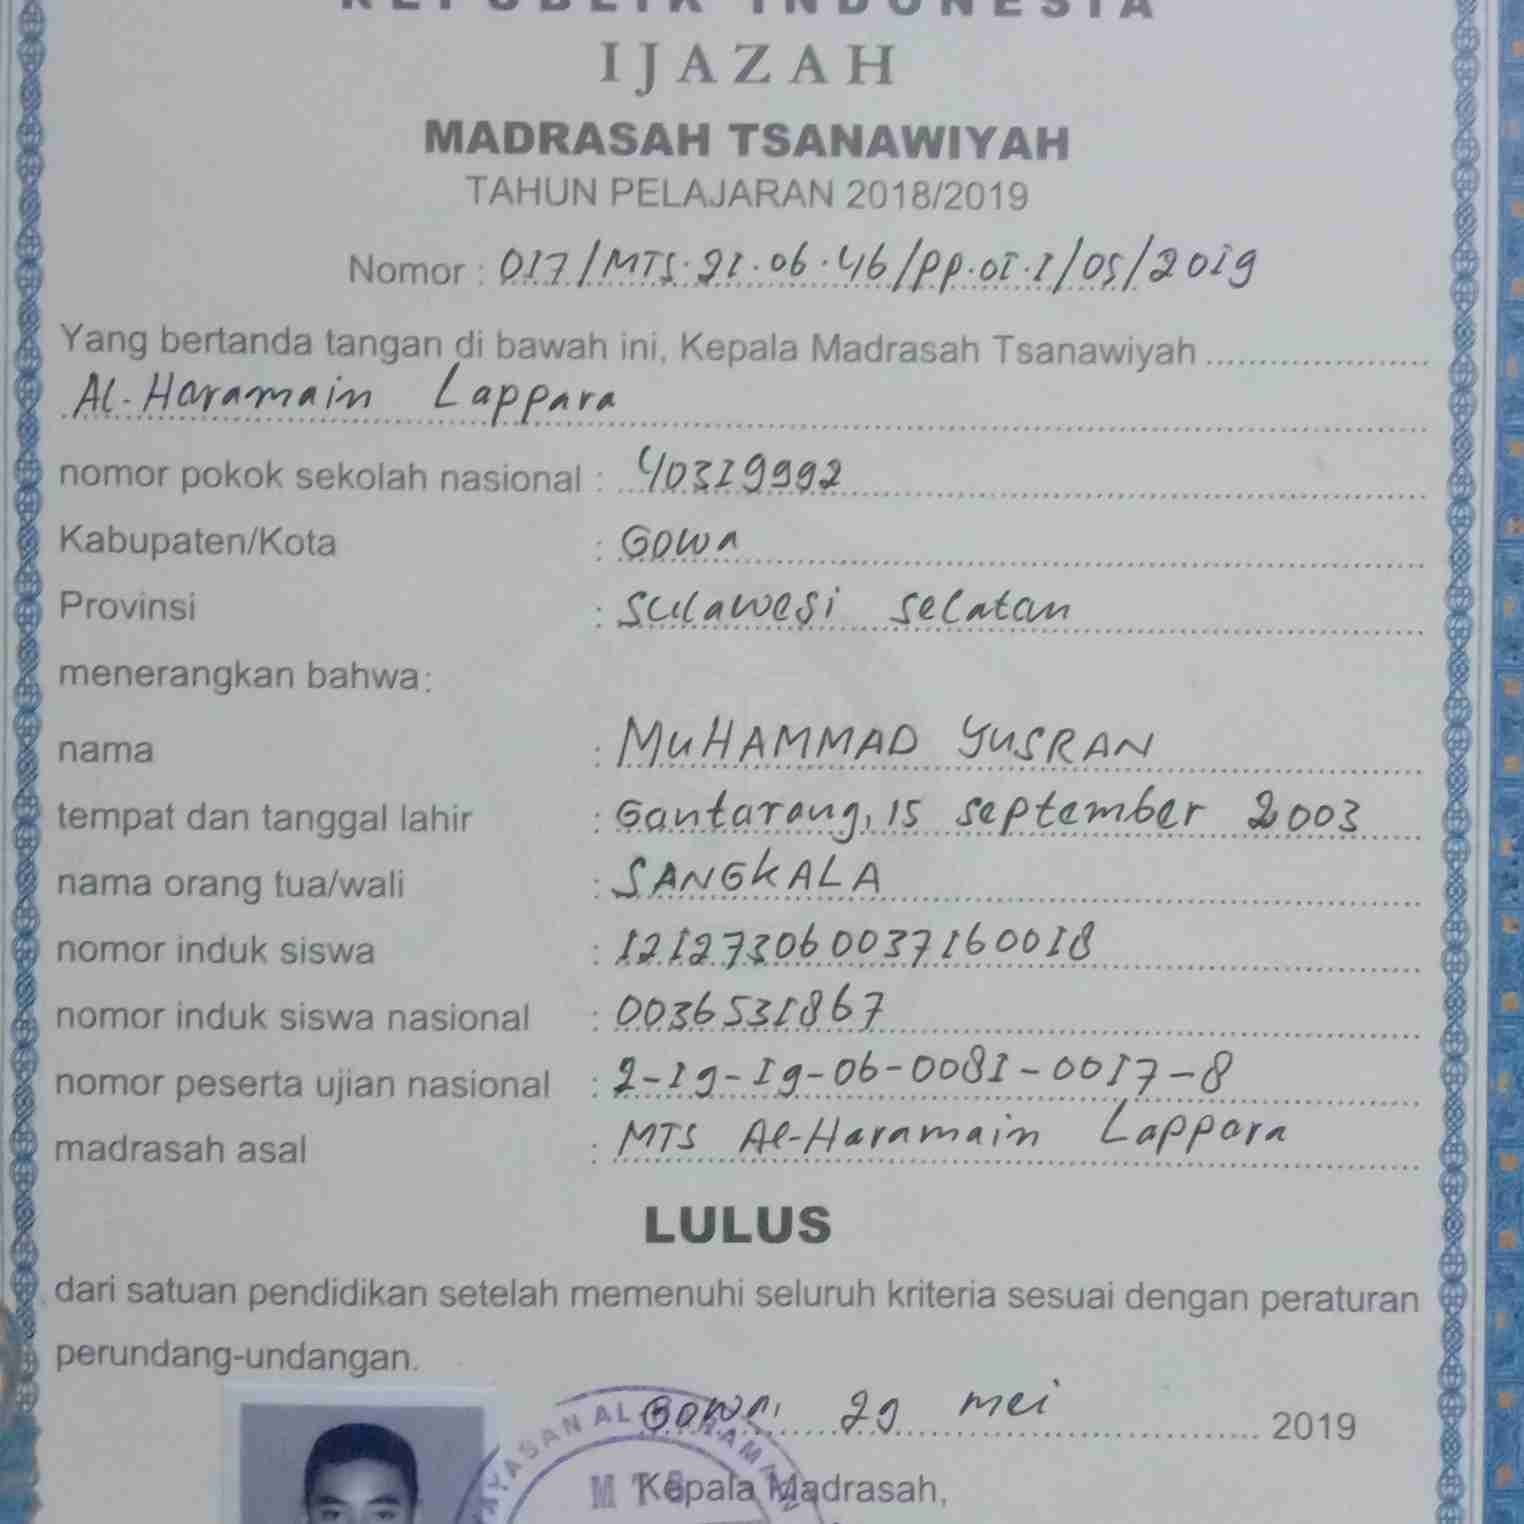 REPUBLIK INDONESIA
IJAZAH
MADRASAH TSANAWIYAH
TAHUN PELAJARAN 2018/2019
Nomor : 017/MTS.21.06.46/PP.01.1/05/2019
Yang bertanda tangan di bawah ini, Kepala Madrasah Tsanawiyah
Al-Haramain Lappara
nomor pokok sekolah nasional : 40319992
Kabupaten/Kota : Gowa
Provinsi : Sulawesi Selatan
menerangkan bahwa:
nama : MUHAMMAD YUSRAN
tempat dan tanggal lahir : Gantarang, 15 September 2003
nama orang tua/wali : SANGKALA
nomor induk siswa : 121273060037160018
nomor induk siswa nasional : 0036531867
nomor peserta ujian nasional : 2-19-19-06-0081-0017-8
madrasah asal : MTS Al-Haramain Lappara
LULUS
dari satuan pendidikan setelah memenuhi seluruh kriteria sesuai dengan peraturan
perundang-undangan.
Gowa, 29 mei 2019
YAYASAN AL HARAMAIN
MTS
Kepala Madrasah,